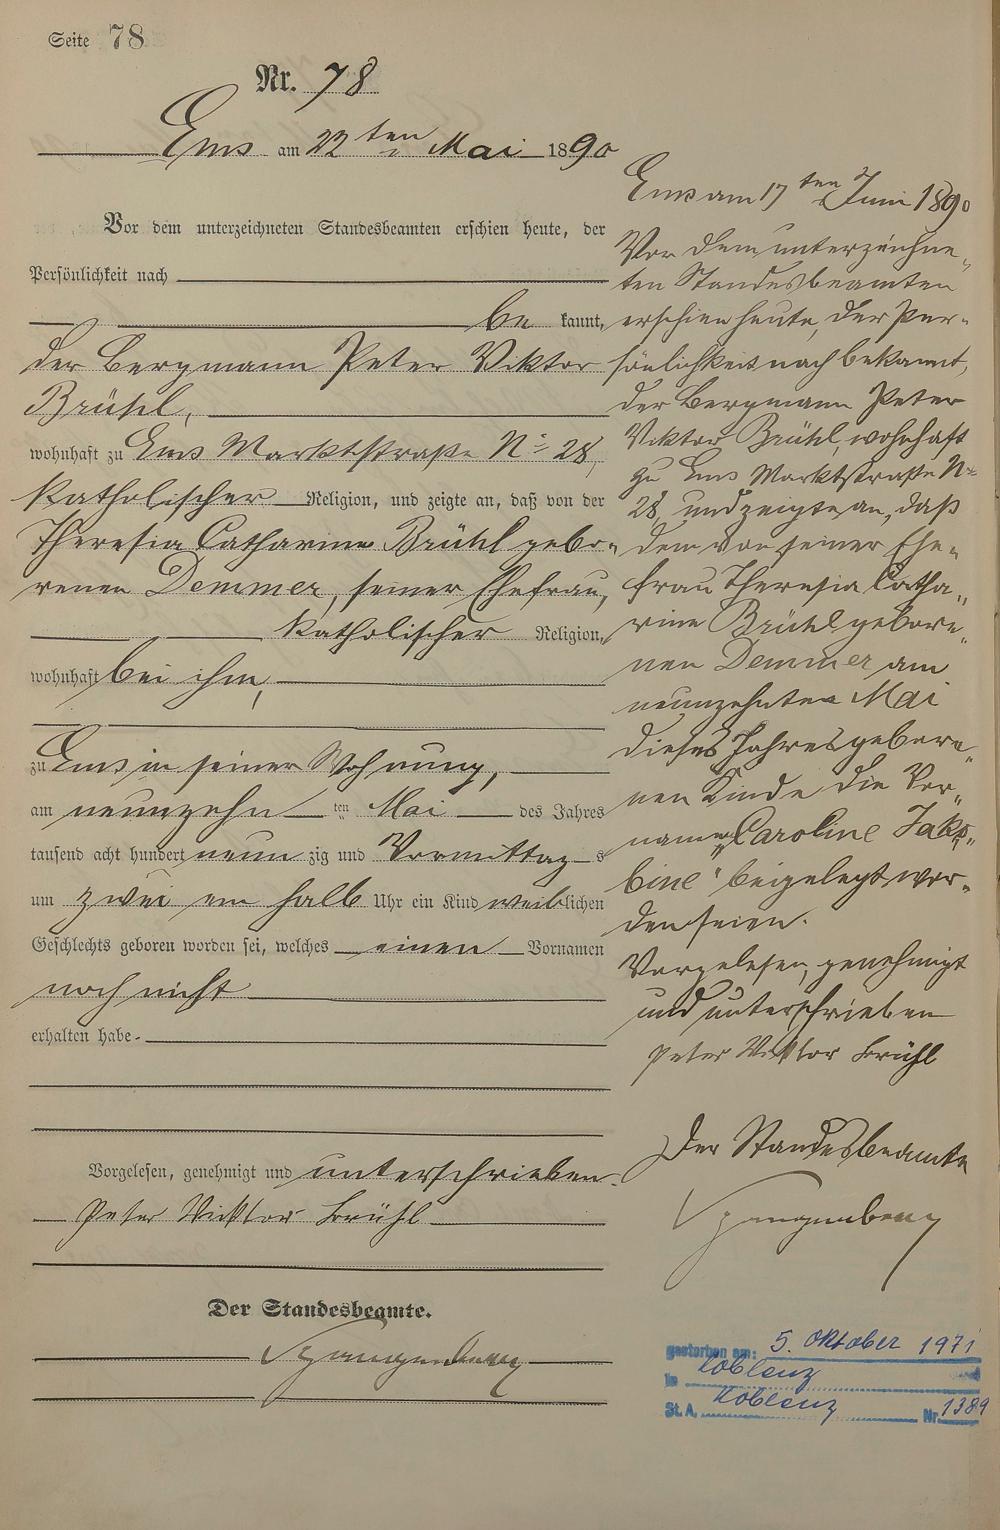 Seite 78
Nr. 78
Ems am 22ten Mai 1890
Vor dem unterzeichneten Standesbeamten erschien heute, der
Persönlichkeit nach
be kannt,
der Bergmann Peter Viktor
Brühl,
wohnhaft zu Ems Marktstraße No 28,
katholischer Religion, und zeigte an, daß von der
Theresia Catharina Brühl gebo-
renen Demmer, seiner Ehefrau,
katholischer Religion,
wohnhaft bei ihm,
zu Ems in seiner Wohnung,
am neunzehn ten Mai des Jahres
tausend acht hundert neun zig und Vormittag s
um zwei ein halb Uhr ein Kind weiblichen
Geschlechts geboren worden sei, welches einen Vornamen
noch nicht
erhalten habe.
Vorgelesen, genehmigt und unterschrieben.
Peter Viktor Brühl
Der Standesbeamte.
Spangenberg
Ems am 17ten Juni 1890
Vor dem unterzeichne-
ten Standesbeamten
erschien heute, der Per-
sönlichkeit nach bekannt,
der Bergmann Peter
Viktor Brühl, wohnhaft
zu Ems Marktstraße No
28, und zeigte an, daß
dem von seiner Ehe-
frau Theresia Catha-
rina Brühl gebore-
nen Demmer am
neunzehnten Mai
dieses Jahres gebore-
nen Kinde die Vor-
namen „Caroline Jako-
bine" beigelegt wor-
den seien.
Vorgelesen, genehmigt
und unterschrieben
Peter Viktor Brühl
Der Standesbeamte
Spangenberg
gestorben am: 5. Oktober 1971
in Koblenz
St. A. Koblenz Nr. 1389